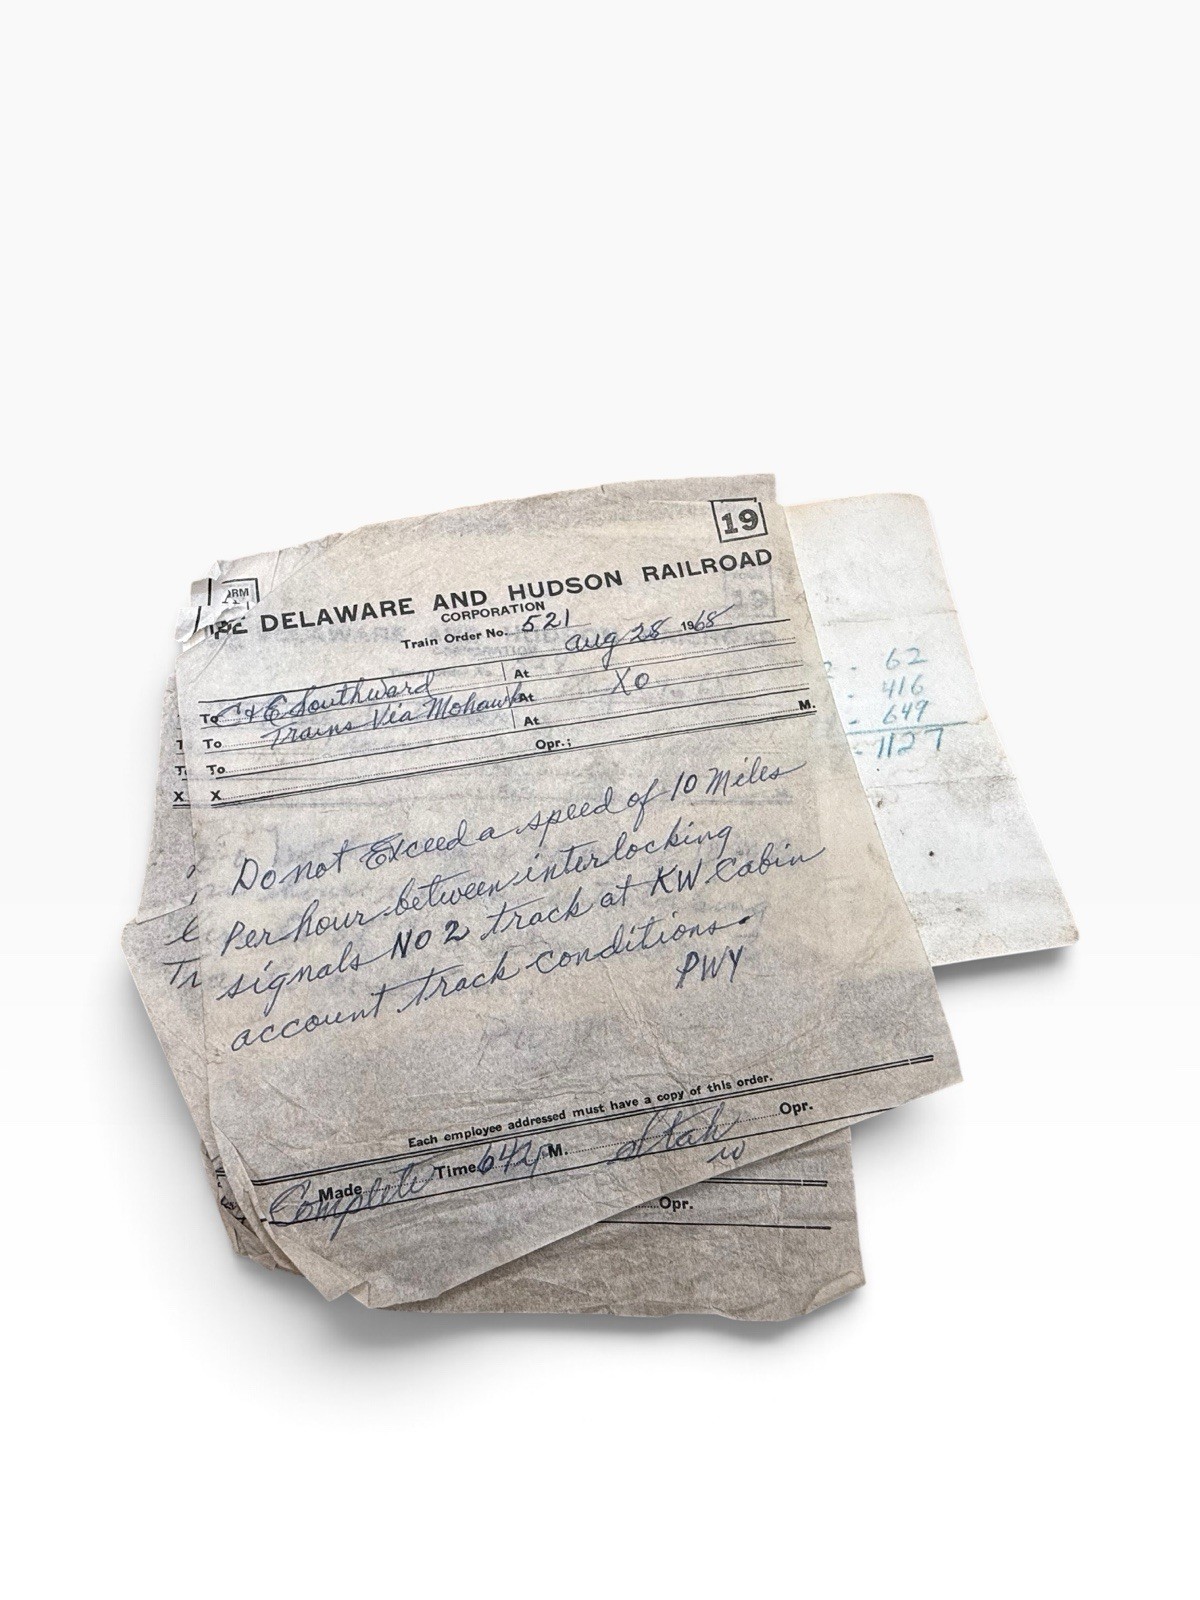 19
DELAWARE AND HUDSON RAILROAD
CORPORATION
Train Order No. 521
Aug 28 1968
To C+E Southward At XO
To Trains Via Mohawk At
To At M.
X Opr.;
Do not Exceed a speed of 10 Miles
Per hour between interlocking
signals NO 2 track at KW Cabin
account track conditions.
PWY
Each employee addressed must have a copy of this order.
Made Complete Time 642 P M. Opr.
Opr.
X
62
416
649
1127